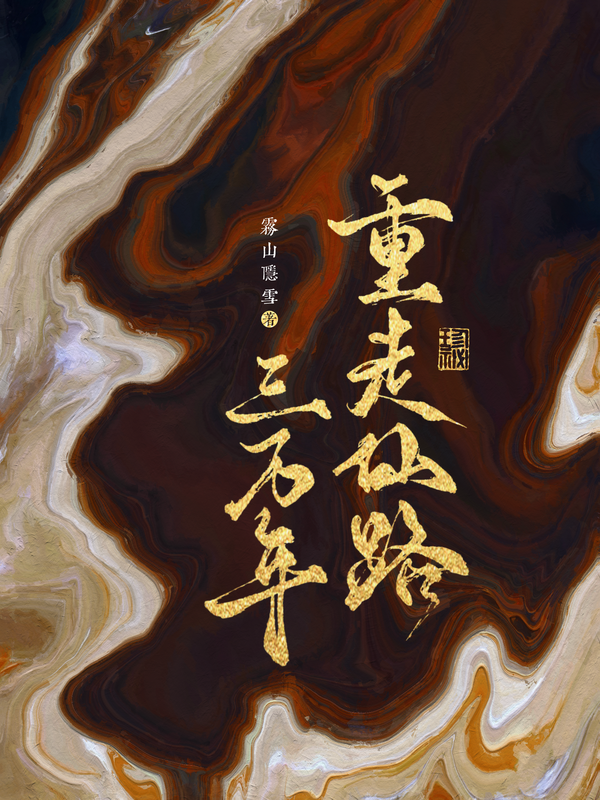 重走仙路
三万年
霧山隱雪著